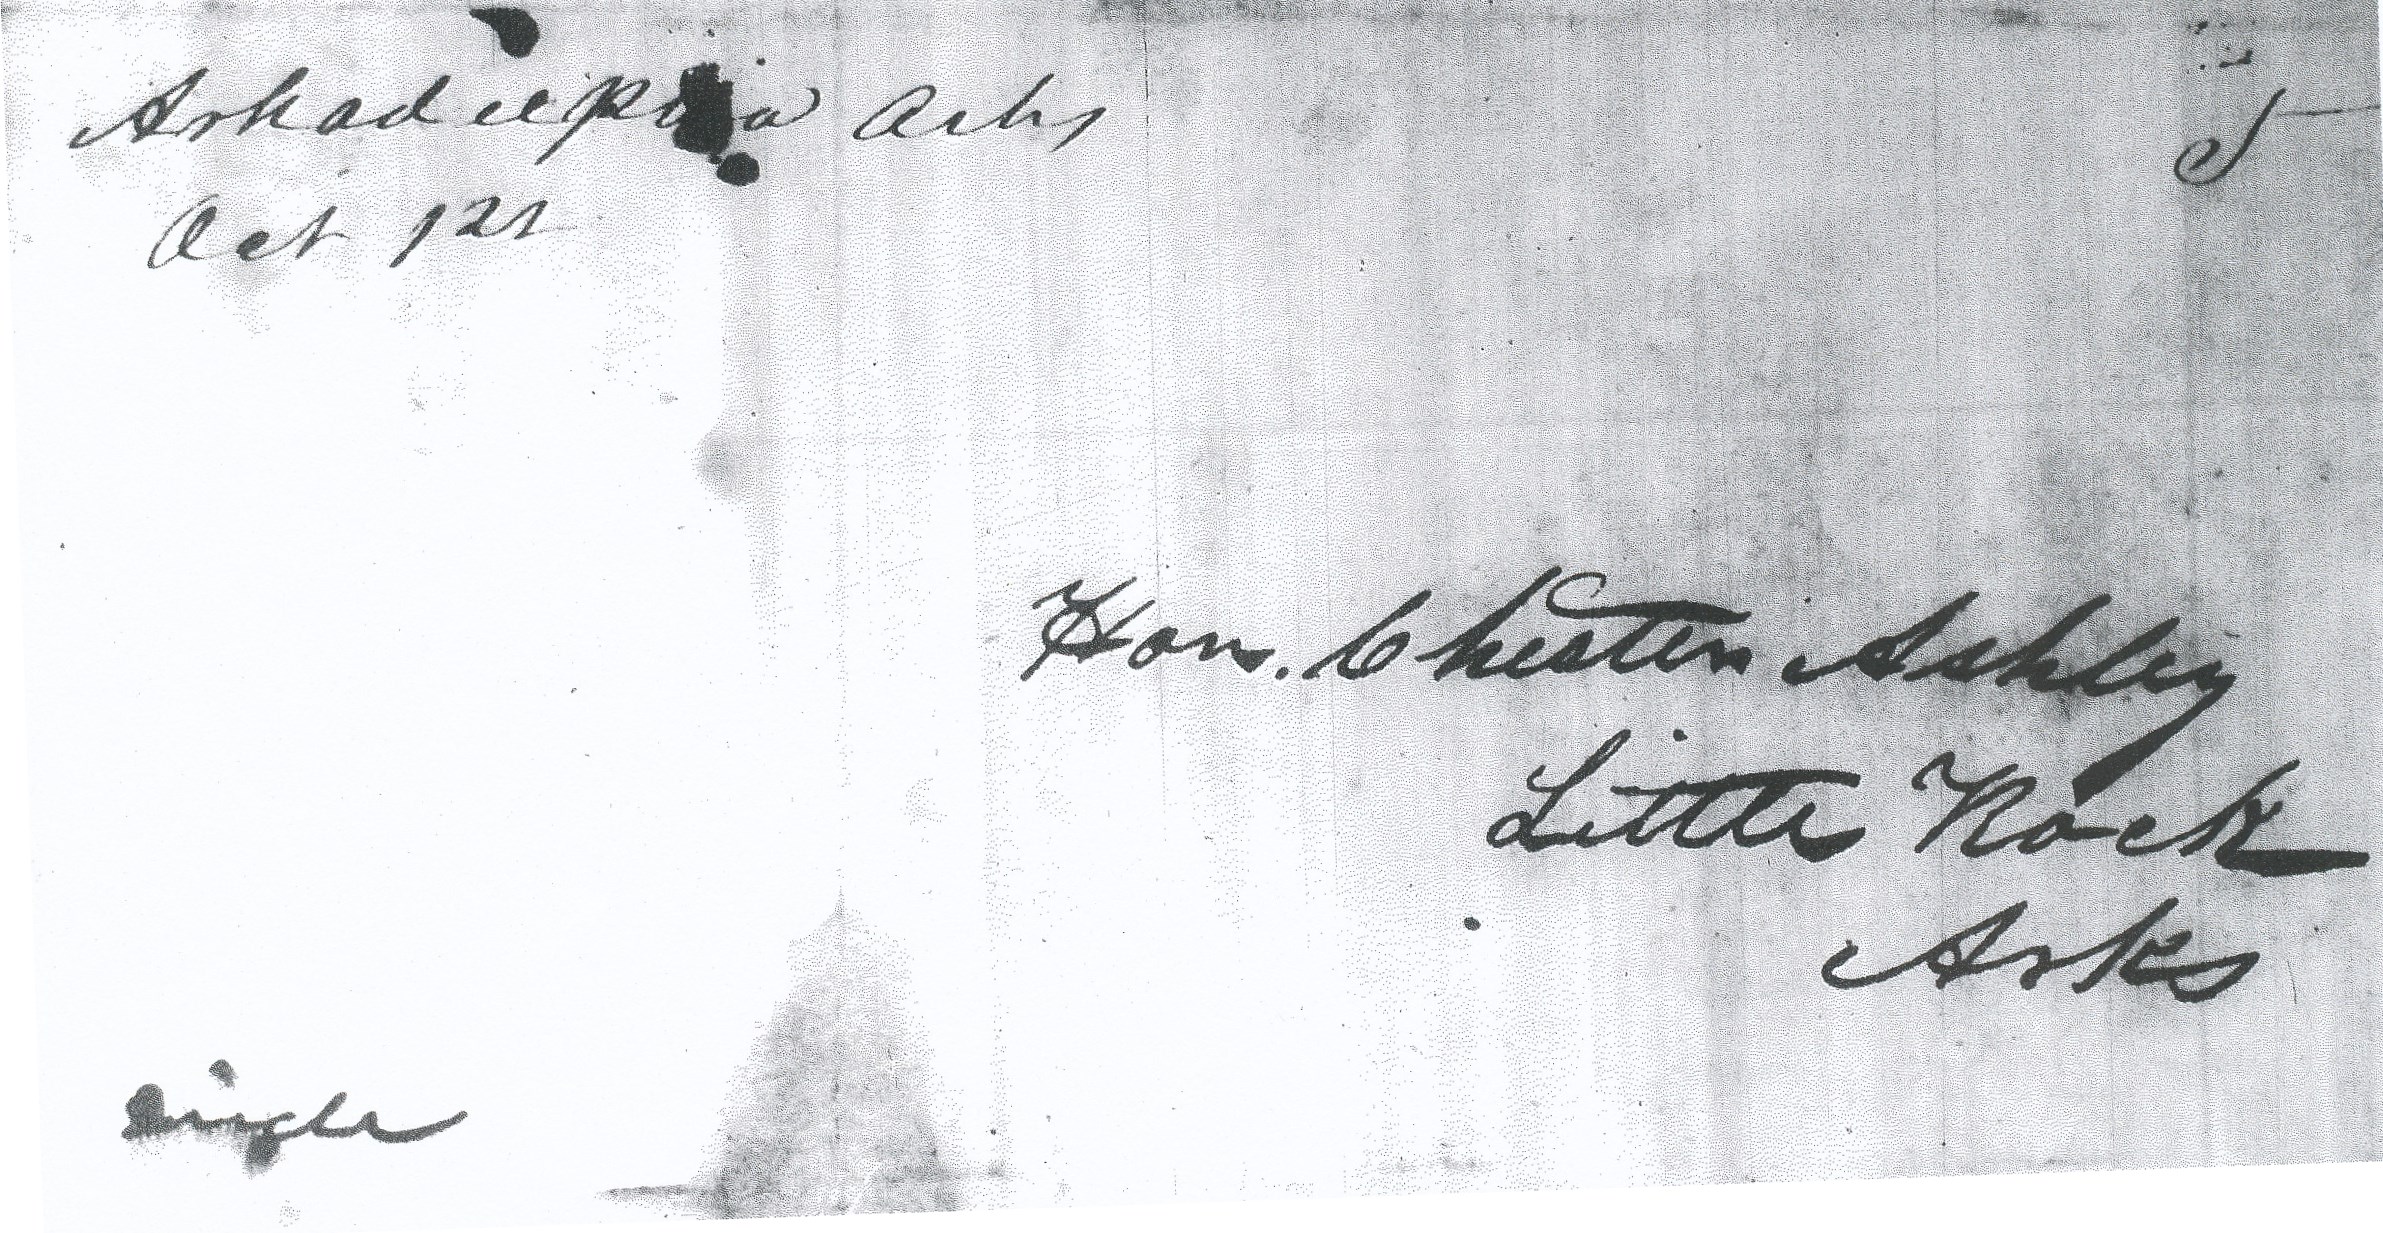 Arkadelphia Arks
5
Oct 12t
Hon. Chester Ashley
Little Rock
Arks
single